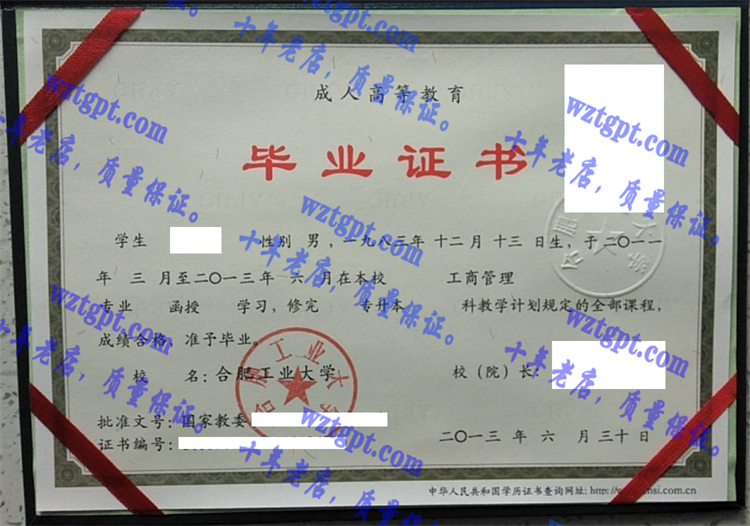 成人高等教育
毕业证书
学生 性别 男，一九八三年 十二月 十三 日生，于二〇一一
年 三 月至二〇一三年 六 月在本校 工商管理
专业 函授 学习，修完 专升本 科教学计划规定的全部课程，
成绩合格，准予毕业。
校 名：合肥工业大学
校（院）长：
批准文号：国家教委
证书编号：
二〇一三 年 六 月 三十 日
中华人民共和国学历证书查询网址：
合肥工业大学
wztgpt.com
十年老店，质量保证。
wztgpt.com
十年老店，质量保证。
wztgpt.com
十年老店，质量保证。
wztgpt.com
十年老店，质量保证。
wztgpt.com
十年老店，质量保证。
wztgpt.com
十年老店，质量保证。
wztgpt.com
十年老店，质量保证。
wztgpt.com
十年老店，质量保证。